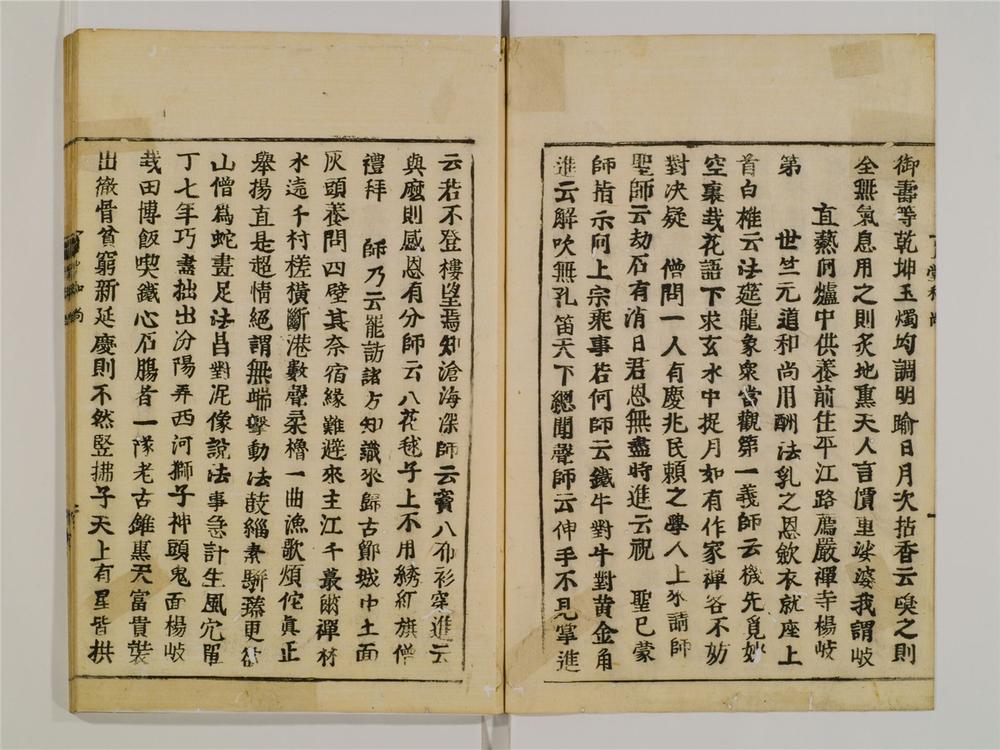 御壽等乾坤玉燭均調明踰日月次拈香云㗖之則
全無氣息用之則炙地熏天人言價重娑婆我謂
直爇向爐中供養前住平江路薦嚴禪寺楊岐
第　世竺元道和尚用酬法乳之恩斂衣就座上
首白椎云法筵龍象衆當觀第一義師云機先覓妙
空裏栽花語下求玄水中捉月如有作家禪客不妨
對決疑　僧問一人有慶兆民賴之學人上來請師
聖師云劫石有消日君恩無盡時進云祝　聖已蒙
師指示向上宗乘事若何師云鐵牛對牛對黄金角
進云解吹無孔笛天下緫聞聲師云伸手不見掌進
云若不登樓望焉知滄海深師云賓八布衫穿進云
與麽則感恩有分師云八花毬子上不用綉紅旗僧
禮拜　師乃云罷訪諸方知識來歸古鄮城中土面
灰頭養閒四壁其奈宿緣難避來主江干蕞爾禪林
水遶千村槎橫斷港數聲柔櫓一曲漁歌煩佗真正
舉揚直是超情絕謂無端擊動法鼓緇素駢臻更欲
山僧爲蛇畫足法昌對泥像說法事急計生風穴單
丁七年巧盡拙出汾陽弄西河獅子神頭鬼面楊岐
栽田博飯喫鐵心石腸者一隊老古錐熏天富貴裝
出徹骨貧窮新延慶則不然竪拂子天上有星皆拱